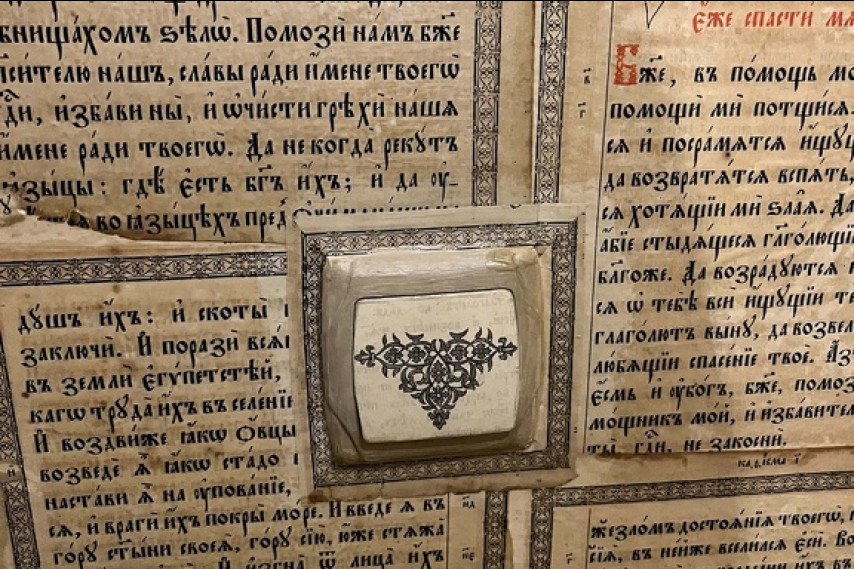 бнища́хомъ ѕѣлѡ̀. Помозѝ на́мъ бж҃е
сп҃си́телю на́шъ, сла́вы ра́ди и҆́мене твоегѡ̀
гдⷭ҇и, и҆зба́ви ны̀, и҆ ѡ҆чи́сти грѣхѝ на́шѧ
и҆́мене ра́ди твоегѡ̀. Да не когда̀ рекꙋ́тъ
ꙗ҆зы́цы: гдѣ̀ є҆́сть бг҃ъ и҆́хъ; и҆ да ᲂу҆-
во ꙗ҆зы́цѣхъ пред̾
дꙋ́шъ и҆́хъ: и҆ скоты̀
заключѝ. И҆ поразѝ всѧ́
въ землѝ є҆гѵ́петстѣй,
трꙋда̀ и҆́хъ въ селе́нїи
И҆ воздви́же ꙗ҆́кѡ ѻ҆́вцы
возведѐ ѧ҆̀ ꙗ҆́кѡ ста́до
наста́ви ѧ҆̀ на ᲂу҆пова́нїе,
сѧ, и҆ врагѝ и҆́хъ покры̀ мо́ре. И҆ введѐ ѧ҆̀ въ
го́рꙋ ст҃ы́ни своеѧ̀, го́рꙋ сїю̀, ю҆́же стѧжа̀
И҆ и҆згна̀ ѿ лица̀ и҆́хъ
є҆́же спастѝ мѧ
Бж҃е, въ по́мощь мо
помощи́ ми потщи́сѧ.
сѧ и҆ посра́мѧтсѧ и҆́щꙋщ
да возвратѧ́тсѧ вспѧ́ть,
сѧ хотѧ́щїи мѝ ѕла̑ѧ. Да
а҆́бїе стыдѧ́щесѧ гл҃го́лющїи
бла́гоже. Да возра́дꙋютсѧ
сѧ ѡ҆ тебѣ̀ всѝ и҆́щꙋщїи те
глаго́лютъ вы́нꙋ, да возвел
лю́бѧщїи спасе́нїе твоѐ. А҆́з
є҆́смь и҆ ᲂу҆бо́гъ, бж҃е, помоз
мо́щникъ мо́й, и҆ и҆зба́вител
ты̀, гдⷭ҇и, не закоснѝ.
каѳі́сма і҃
же́зломъ достоѧ́нїѧ твоегѡ̀,
сїѧ̀, въ не́йже всели́лсѧ є҆сѝ. Во